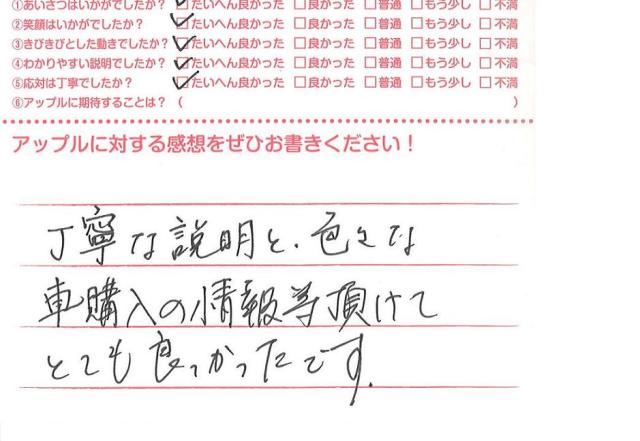 ①あいさつはいかがでしたか？ ☑たいへん良かった □良かった □普通 □もう少し □不満
②笑顔はいかがでしたか？ ☑たいへん良かった □良かった □普通 □もう少し □不満
③きびきびとした動きでしたか？ ☑たいへん良かった □良かった □普通 □もう少し □不満
④わかりやすい説明でしたか？ ☑たいへん良かった □良かった □普通 □もう少し □不満
⑤応対は丁寧でしたか？ ☑たいへん良かった □良かった □普通 □もう少し □不満
⑥アップルに期待することは？（ ）
アップルに対する感想をぜひお書きください！
丁寧な説明と、色々な
車購入の情報等頂けて
とても良っかったです。